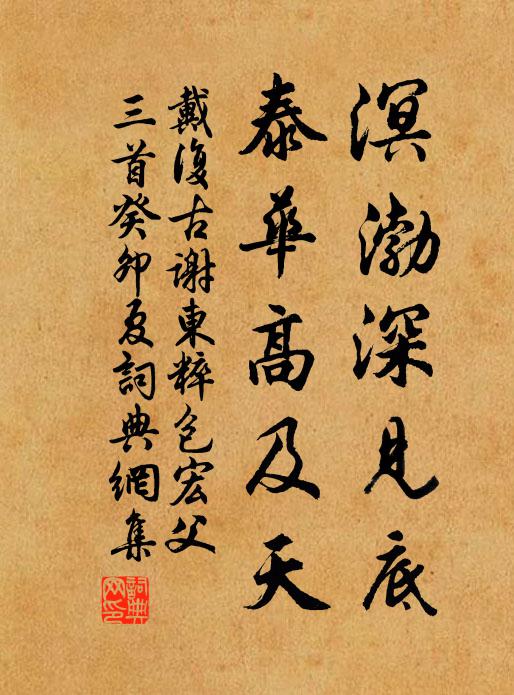 溟渤深見底
泰華高及天
戴復古謝東粹包宏父
三首癸卯夏詞典網集
詞典
网印